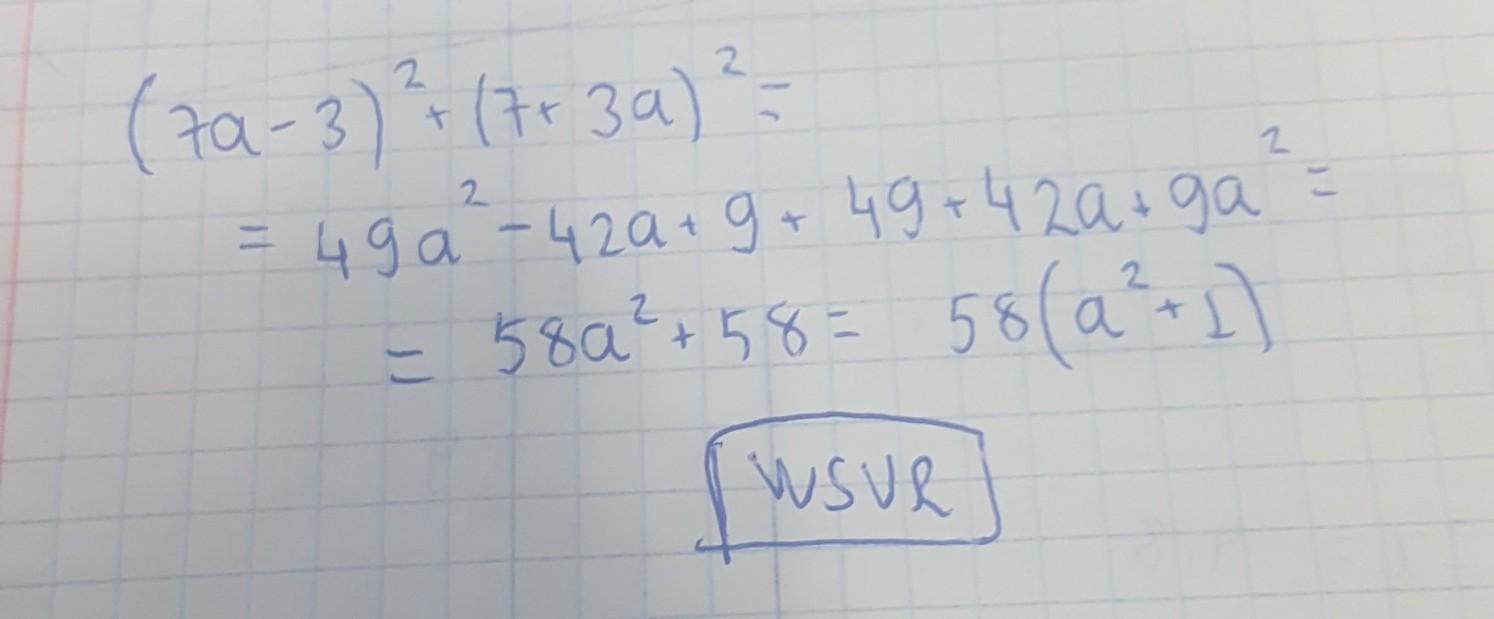 (7a-3)²+(7+3a)²=
=49a²-42a+9+49+42a+9a²=
=58a²+58= 58(a²+1)
WSVR